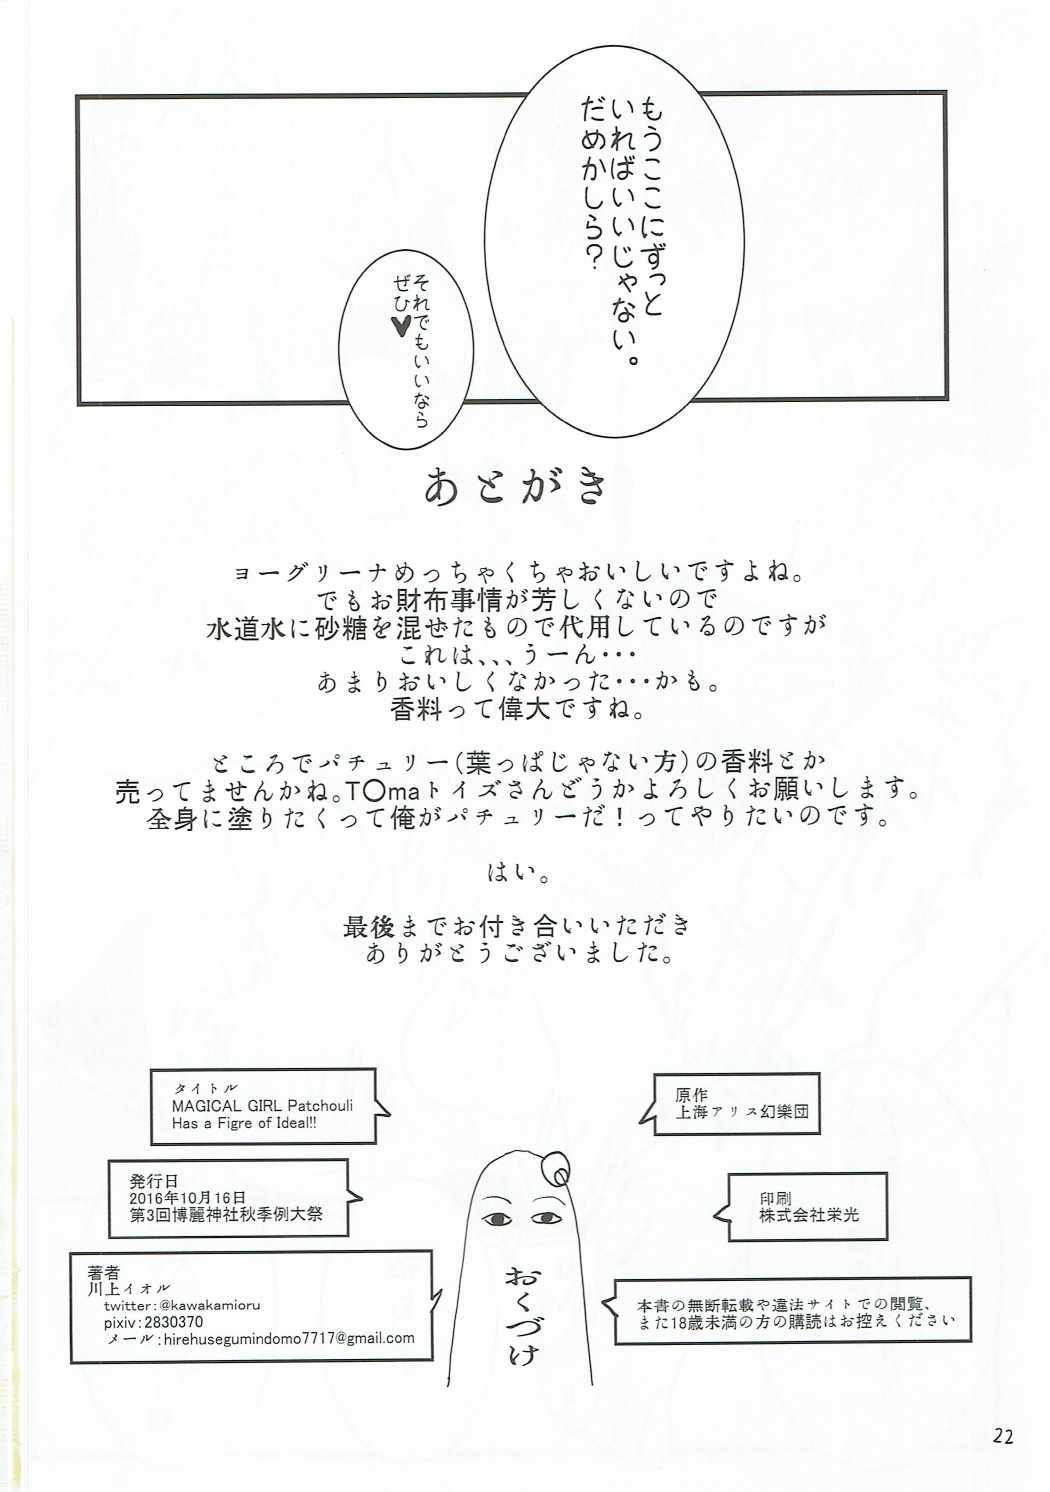 もうここにずっと
いればいいじゃない。
だめかしら？
それでもいいなら
ぜひ♥
あとがき
ヨーグリーナめっちゃくちゃおいしいですよね。
でもお財布事情が芳しくないので
水道水に砂糖を混ぜたもので代用しているのですが
これは、、、うーん・・・
あまりおいしくなかった・・・かも。
香料って偉大ですね。
ところでパチュリー(葉っぱじゃない方)の香料とか
売ってませんかね。T〇maトイズさんどうかよろしくお願いします。
全身に塗りたくって俺がパチュリーだ！ってやりたいのです。
はい。
最後までお付き合いいただき
ありがとうございました。
タイトル
MAGICAL GIRL Patchouli
Has a Figre of Ideal!!
原作
上海アリス幻樂団
発行日
2016年10月16日
第3回博麗神社秋季例大祭
印刷
株式会社栄光
著者
川上イオル
twitter:@kawakamioru
pixiv:2830370
メール:hirehusegumindomo7717@gmail.com
おくづけ
本書の無断転載や違法サイトでの閲覧、
また18歳未満の方の購読はお控えください
22